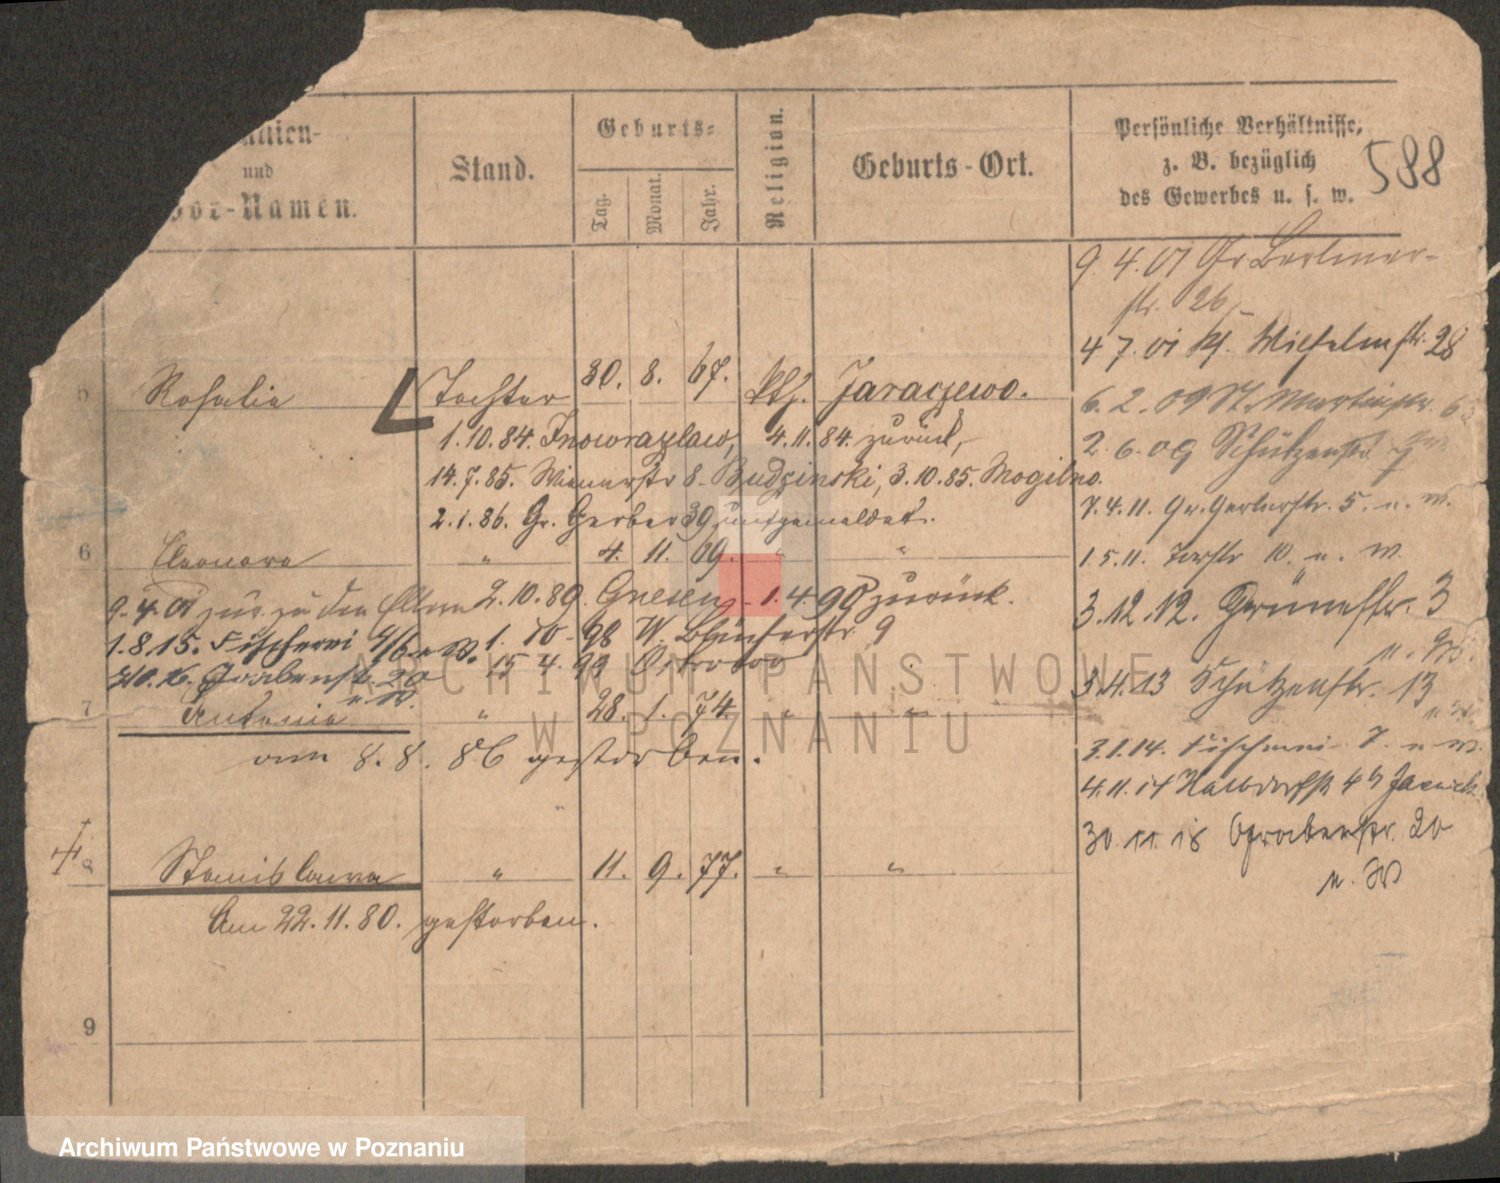 und
Vor-Namen.
Stand.
Geburts-
Tag.
Monat.
Jahr.
Religion.
Geburts-Ort.
Persönliche Verhältnisse,
z. B. bezüglich
des Gewerbes u. s. w.
588
9.4.01 Gr Berliner-
str. 26
4 7. 01 Kl. Wilhelmstr. 28
5 Rosalie Tochter 30. 8. 67. kth. Jaraczewo.
6. 2. 09 St. Martinstr. 6
1.10.84. Inowrazlaw, 4.11.84. zurück,
2. 6. 09 Schützenstr
14.7.85. Wienerstr 8 - Budzinski, 3.10.85. Mogilno.
7.4.11. Gr. Gerberstr. 5. u. W.
2.1.86. Gr. Gerber 39 umgemeldet.
6 Eleonora " 4. 11. 69. " "
1.5.11. Torstr 10. u. W.
9.4.01 zur. zu den Eltern 2.10.89. Gnesen - 1.4.90 zurück.
3.12.12. Grünestr. 3
u. W.
1.8.15. Fischerei 4/6 u W. 1. 10. 98 W. Blücherstr. 9
Grabenstr. 20 15 4. 99 Ostrowo
u. W.
3.4.13 Schützenstr. 13
u W.
7 Antonie " 28. 1. 74. " "
am 8. 8. 86 gestorben.
3.1.14. Fischerei 7. u W.
4.11.14 Halbdorfstr 4
30.11.18 Grabenstr. 20
u. W
8 Stanislawa " 11. 9. 77. " "
Am 22.11.80. gestorben.
9
ARCHIWUM PAŃSTWOWE
W POZNANIU
Archiwum Państwowe w Poznaniu